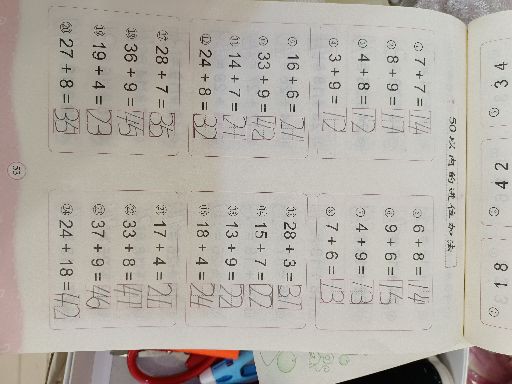 50以内的进位加法
① 7 + 7 = 14
⑤ 6 + 8 = 14
② 8 + 9 = 17
⑥ 9 + 6 = 15
③ 4 + 8 = 12
⑦ 4 + 9 = 13
④ 3 + 9 = 12
⑧ 7 + 6 = 13
⑨ 16 + 6 = 21
⑬ 28 + 3 = 31
⑩ 33 + 9 = 42
⑭ 15 + 7 = 22
⑪ 14 + 7 = 21
⑮ 13 + 9 = 22
⑫ 24 + 8 = 32
⑯ 18 + 4 = 24
⑰ 28 + 7 = 35
㉑ 17 + 4 = 21
⑱ 36 + 9 = 45
㉒ 33 + 8 = 41
⑲ 19 + 4 = 23
㉓ 37 + 9 = 46
⑳ 27 + 8 = 35
㉔ 24 + 18 = 42
53
34
42
18